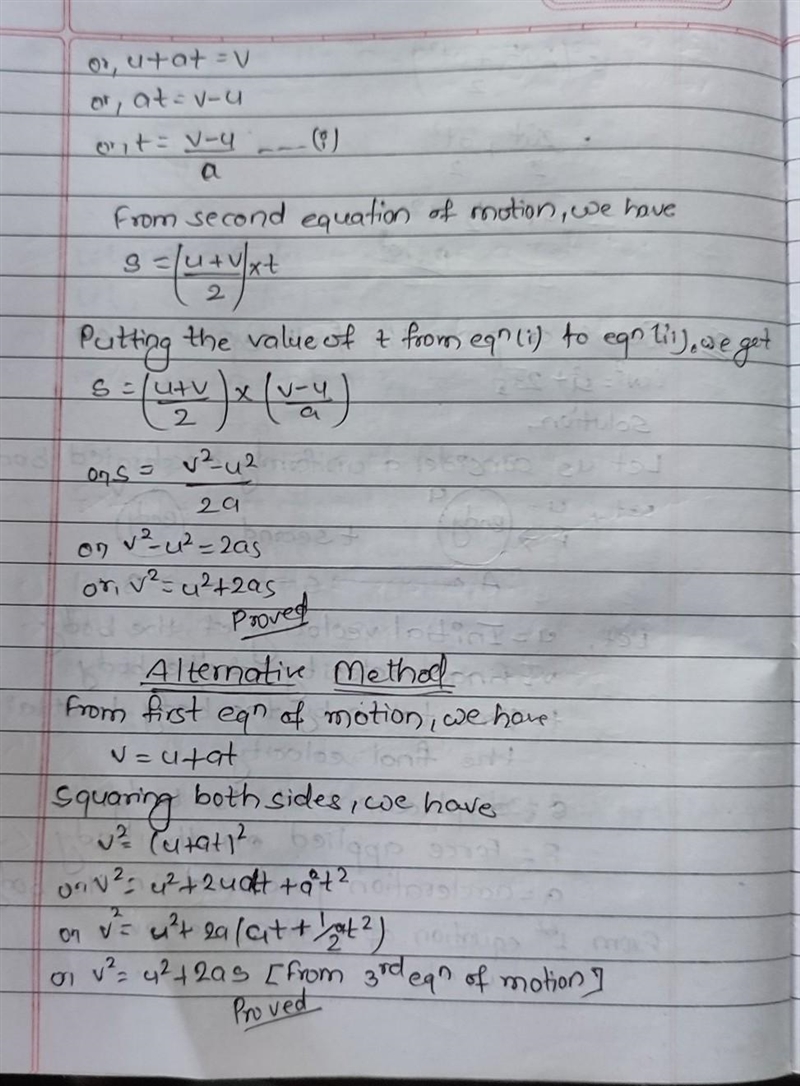 or, u+at = v
or, at = v-u
or, t = v-u/a ---- (i)
From second equation of motion, we have
s = (u+v/2) × t
Putting the value of t from eqn (i) to eqn (ii), we get
s = (u+v/2) × (v-u/a)
or, s = v²-u²/2a
or, v²-u² = 2as
or, v² = u²+2as
Proved
Alternative Method
From first eqn of motion, we have
v = u+at
Squaring both sides, we have
v² = (u+at)²
or, v² = u²+2uat+a²t²
or, v² = u²+2a(ut+1/2at²)
or, v² = u²+2as [from 3rd eqn of motion]
Proved